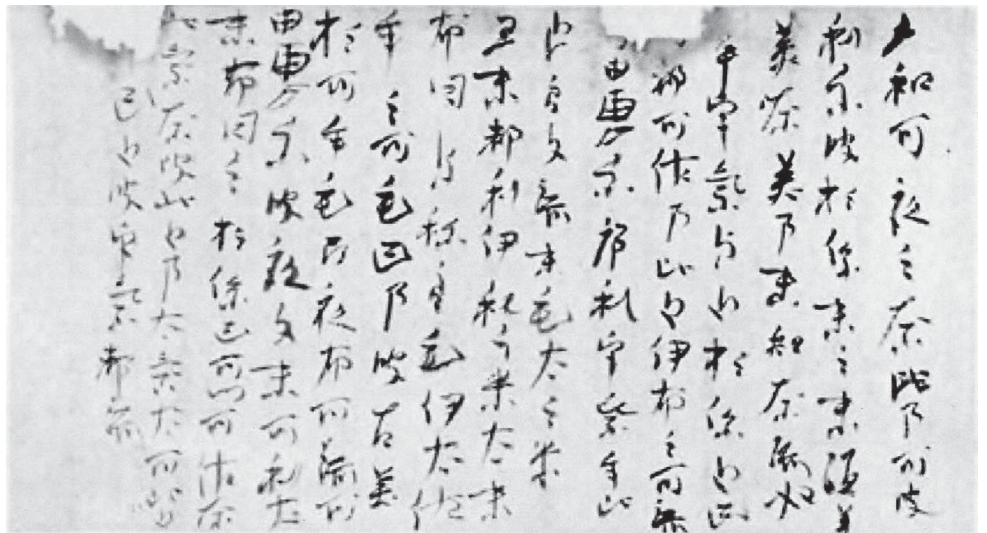 和可夜之奈比乃可波
利尓波於保末之末須
美奈美乃末知奈流奴
乎宇気与止於保止己
可都可佐乃比止伊布之可流
由恵尓序礼宇気牟比
止良久流末毛太之米
弖末都利伊礼之米太末
布日与祢良毛伊太佐
牟之可毛己乃波古美
於可牟毛阿夜布可流可
由恵尓波夜久末可利太
末布日之於保己可川可佐奈
比気奈波比止乃太気太可比
己止波宇気都流